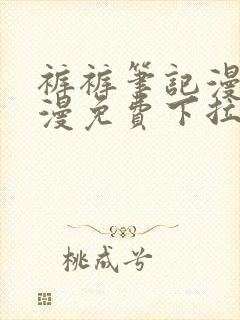 裤裤筆記漫
漫免費下拉
桃成兮